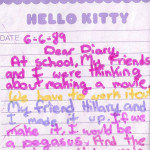 HELLO KITTY
DATE 6-6-99
Dear Diary,
At school, My friends
and I were thinking
about making a movie.
We have to work
My friend Hillary and
I made it up. If we
make it, I would be
a pegasus. And the